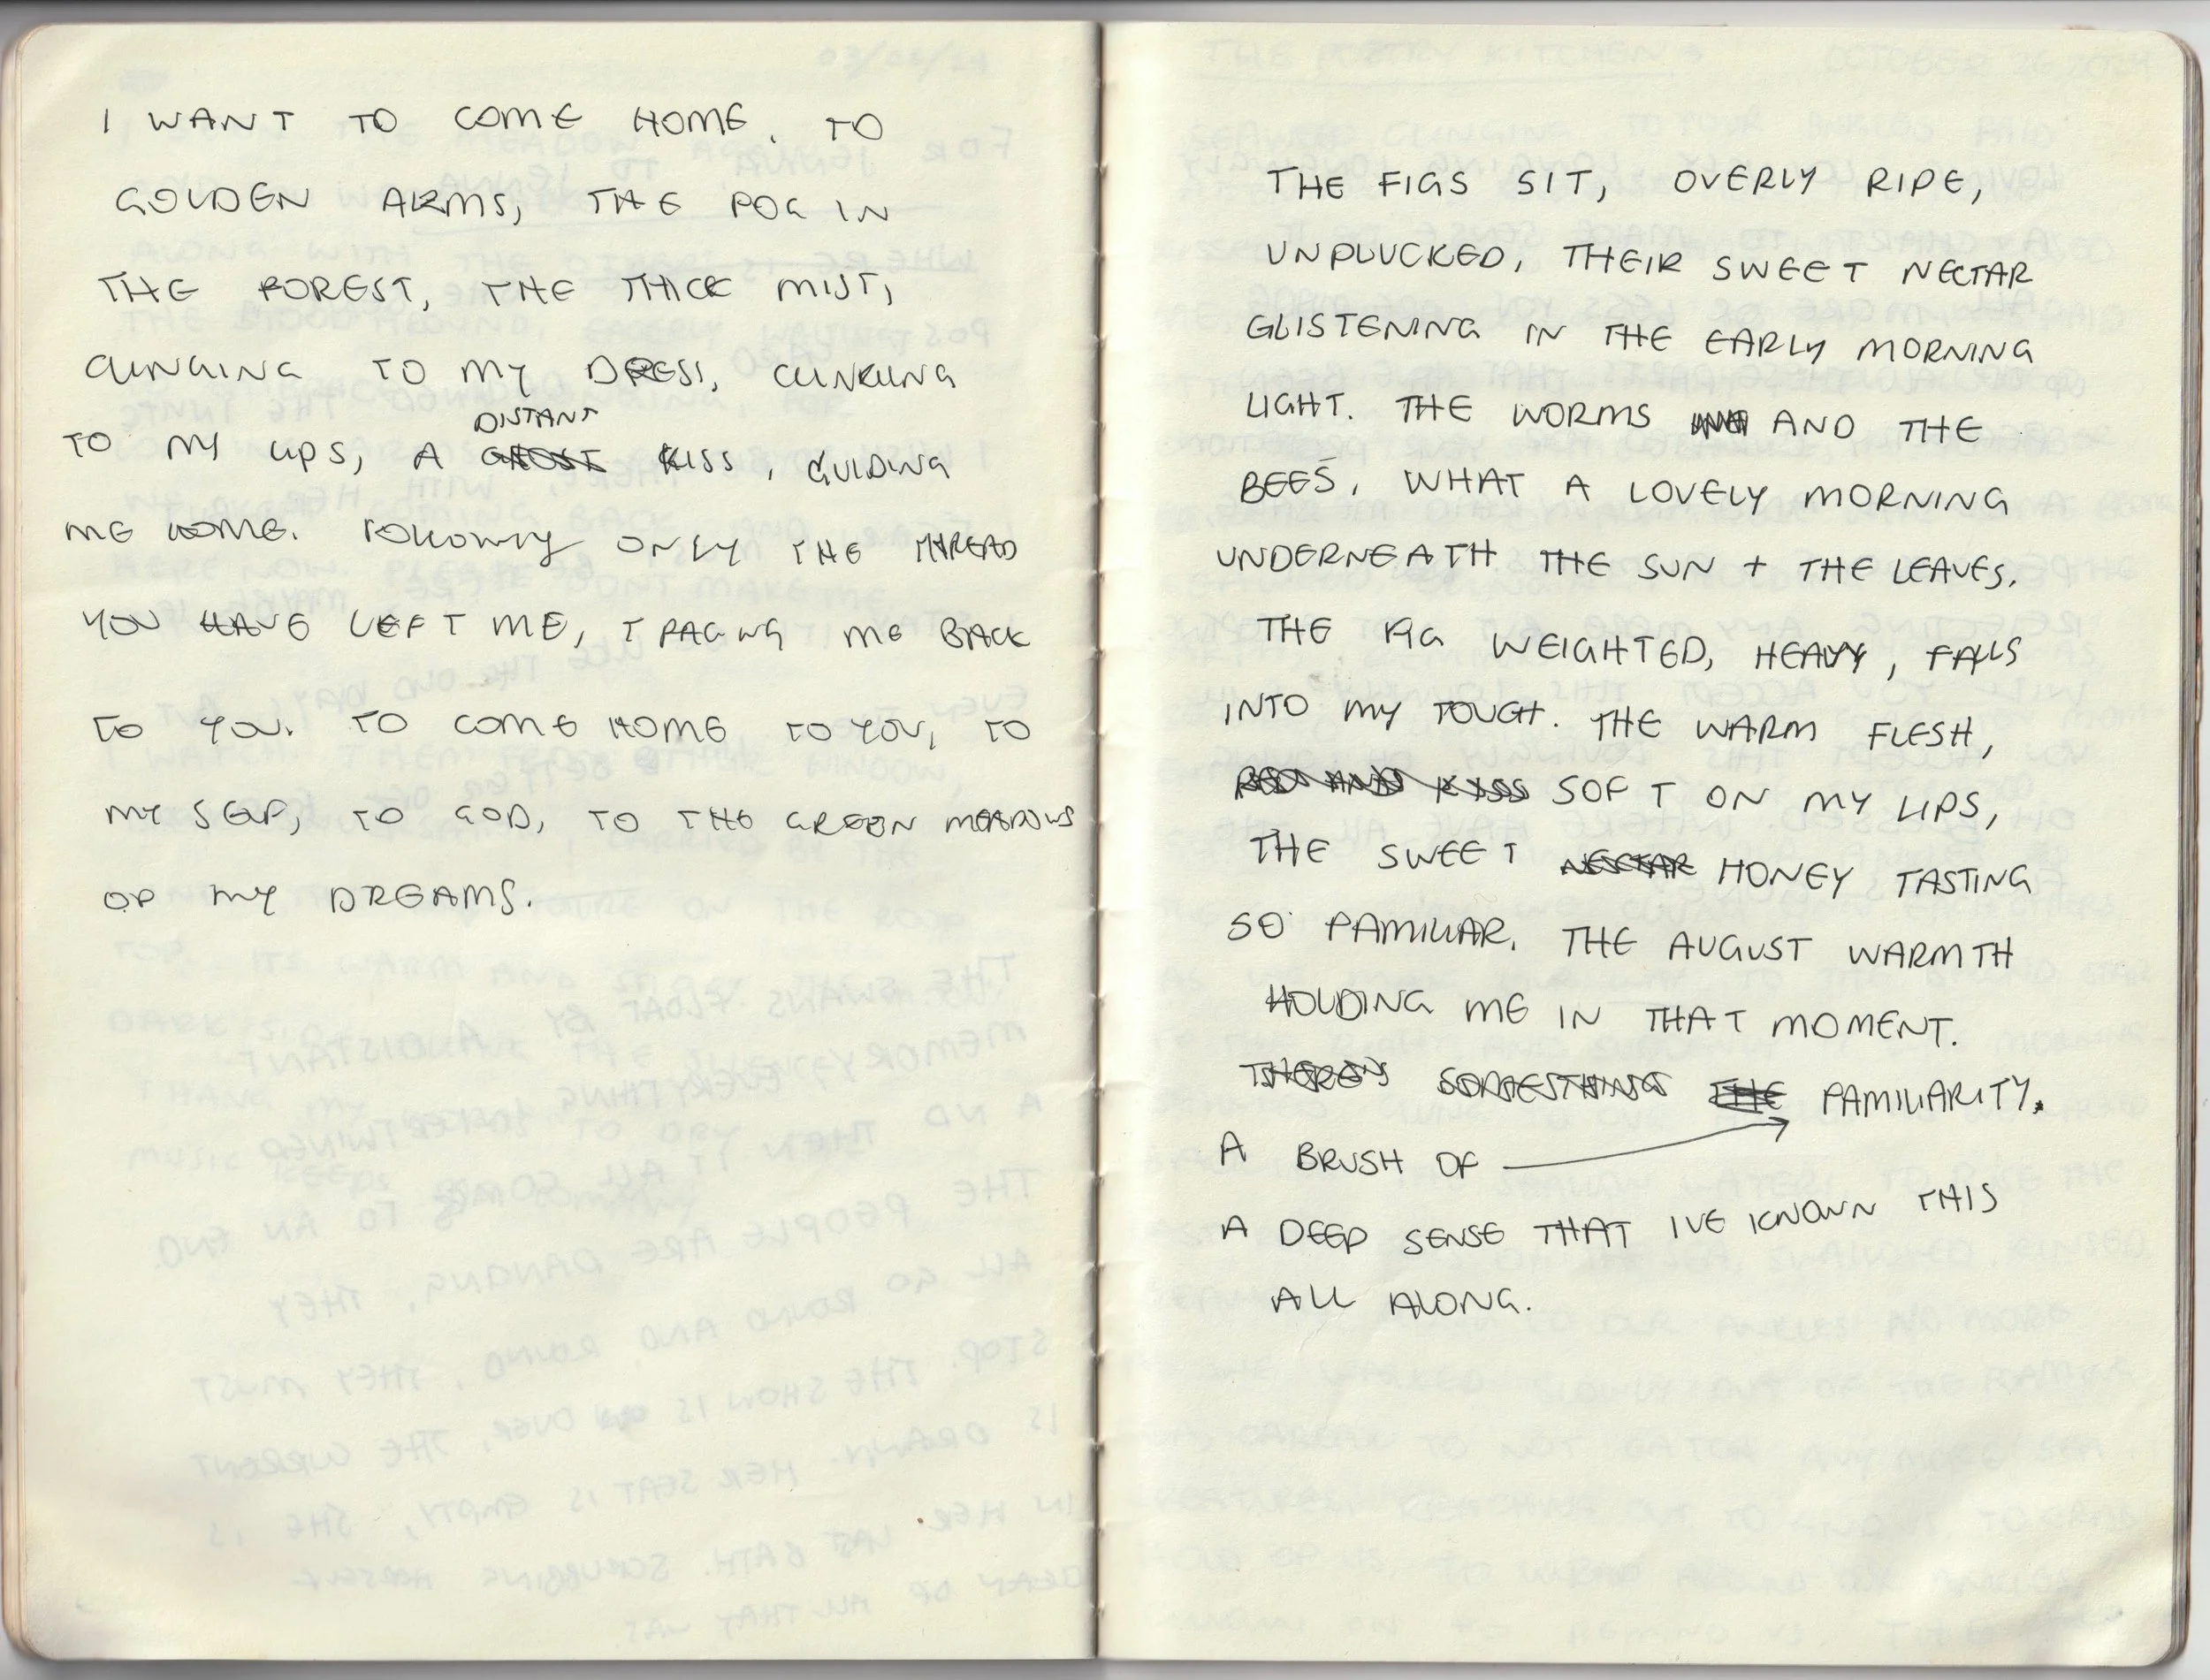 I WANT TO COME HOME. TO
GOLDEN ARMS, THE FOG IN
THE FOREST, THE THICK MIST,
CLINGING TO MY DRESS, CLINKLING
DISTANT
TO MY LIPS, A GHOST KISS, GUIDING
ME HOME. FOLLOWING ONLY THE THREAD
YOU HAVE LEFT ME, TRACING ME BACK
TO YOU. TO COME HOME TO YOU, TO
MY SELF, TO GOD, TO THE GREEN MEADOWS
OF MY DREAMS.
THE FIGS SIT, OVERLY RIPE,
UNPLUCKED, THEIR SWEET NECTAR
GLISTENING IN THE EARLY MORNING
LIGHT. THE WORMS AND THE
BEES, WHAT A LOVELY MORNING
UNDERNEATH THE SUN + THE LEAVES.
THE FIG WEIGHTED, HEAVY, FALLS
INTO MY TOUCH. THE WARM FLESH,
RED AND KISS SOFT ON MY LIPS,
THE SWEET NECTAR HONEY TASTING
SO FAMILIAR. THE AUGUST WARMTH
HOLDING ME IN THAT MOMENT.
THERE'S SOMETHING THE FAMILIARITY.
A BRUSH OF
A DEEP SENSE THAT IVE KNOWN THIS
ALL ALONG.